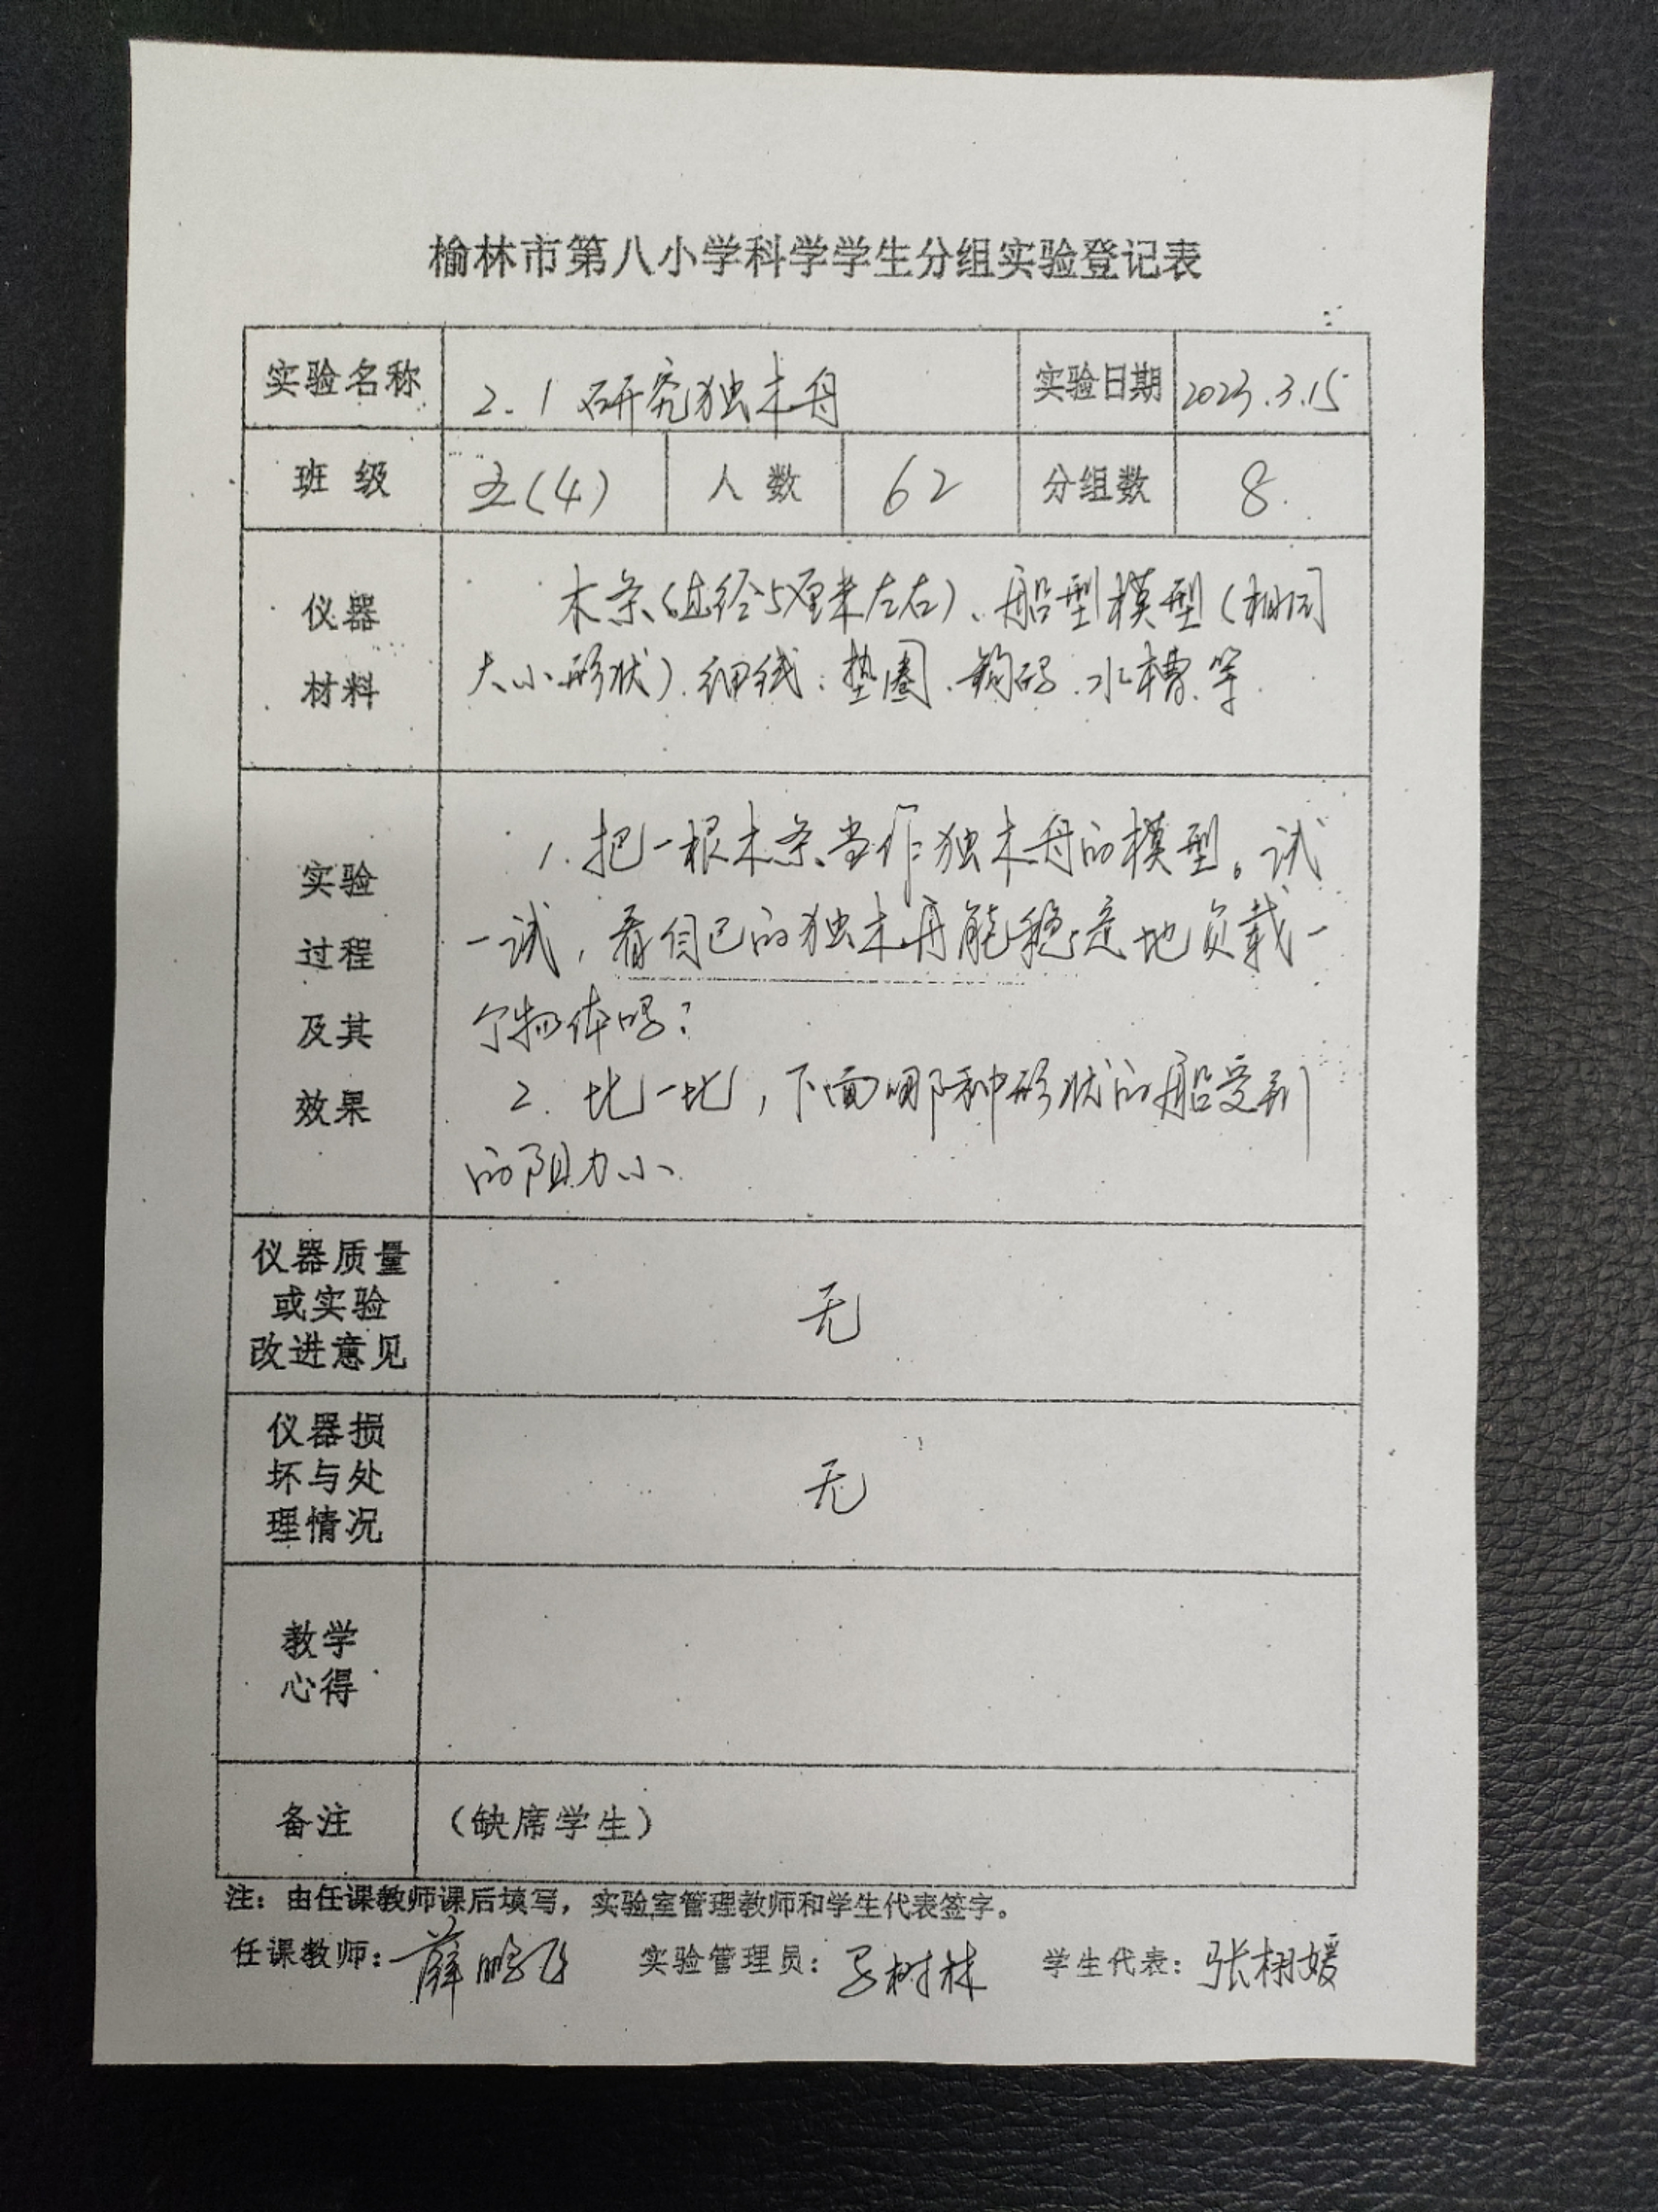 榆林市第八小学科学学生分组实验登记表
实验名称 2.1 研究独木舟 实验日期 2023.3.15
班 级 五(4) 人 数 62 分组数 8.
仪器
材料
木条(直径5厘米左右)、船型模型(相同
大小形状).细线.垫圈.钩码.水槽.等
实验
过程
及其
效果
1.把一根木条当作独木舟的模型。试
一试,看自己的独木舟能稳定地负载一
个物体吗?
2.比一比,下面哪种形状的船受到
的阻力小.
仪器质量
或实验
改进意见
无
仪器损
坏与处
理情况
无
教学
心得
备注 (缺席学生)
注:由任课教师课后填写,实验室管理教师和学生代表签字。
任课教师:薛鹏飞 实验管理员: 树林 学生代表:张栩媛